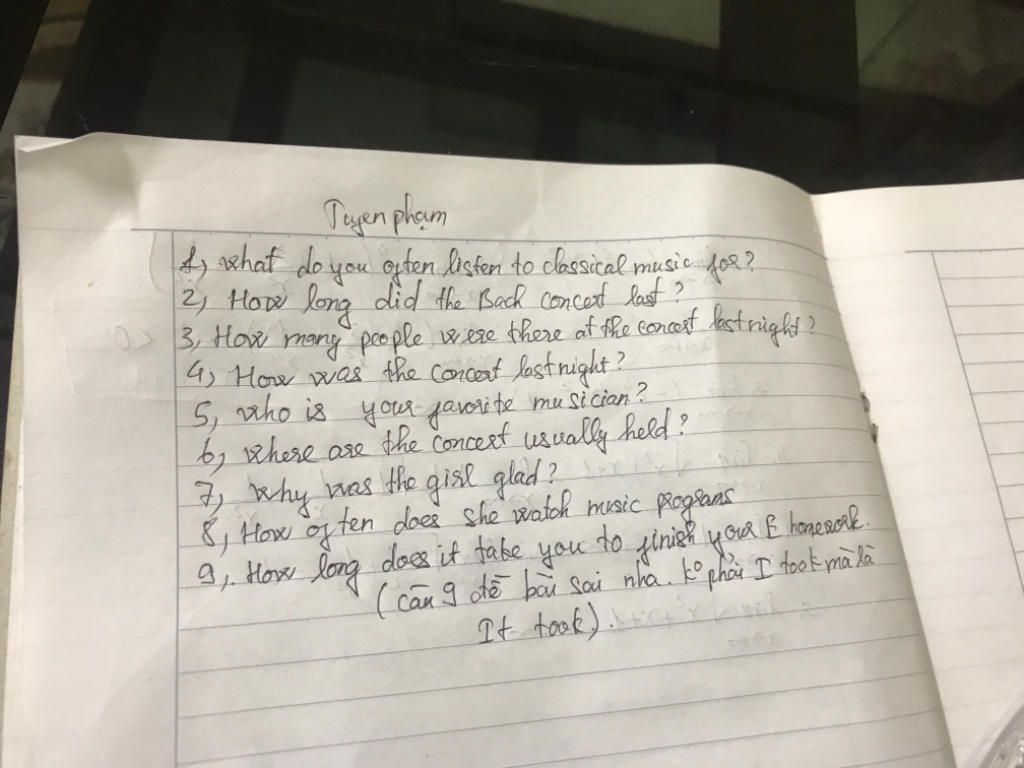 Tuyen phạm
1, what do you often listen to classical music for?
2, How long did the Bach concert last?
3, How many people were there at the concert last night?
4, How was the concert last night?
5, who is your favorite musician?
6, where are the concert usually held?
7, why was the girl glad?
8, How often does she watch music programs
9, How long does it take you to finish your E homework.
(câu 9 đề bài sai nha. ko phải I took mà là
It took).